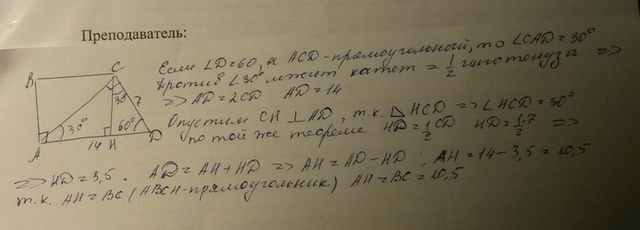 Преподаватель:
Если ∠D=60, а ACD-прямоугольный, то ∠CAD=30°
Против ∠30° лежит катет = 1/2 гипотенузы =>
=> AD=2CD AD=14
Опустим CH ⊥ AD, т.к. △HCD => ∠HCD=30°
по той же теореме HD=1/2 CD HD=1·7/2 =>
=> HD=3,5. AD=AH+HD => AH=AD-HD; AH=14-3,5=10,5
т.к. AH=BC (ABCH-прямоугольник) AH=BC=10,5
B
C
30°
7
30°
60°
A
14
H
D